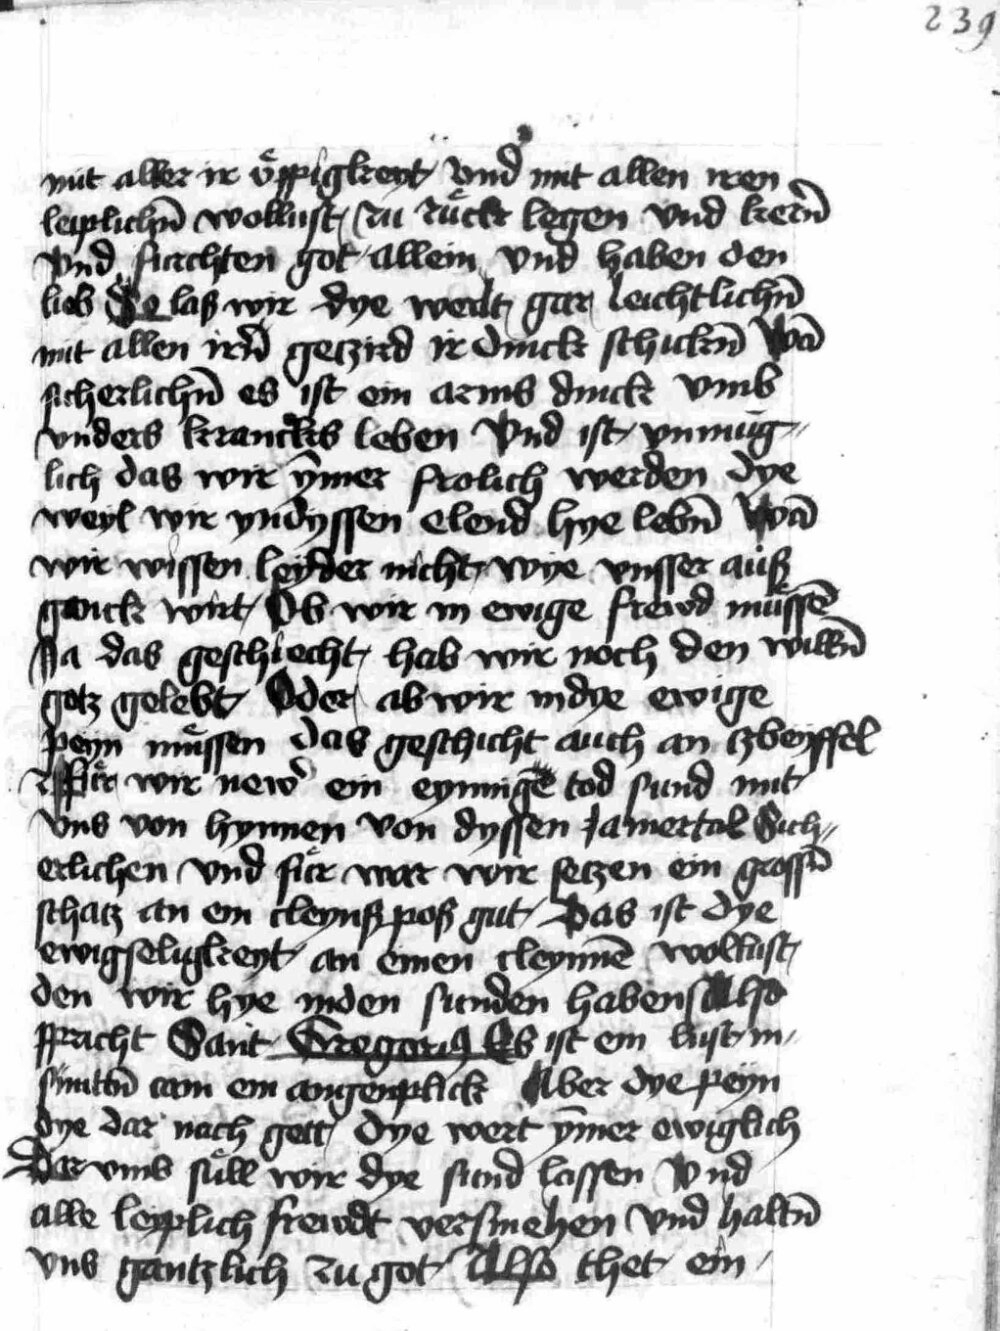 239
mit aller ir üppigkeyt Vnd mit allen iren
leiplichn̄ wollust zu rück legen vnd kern̄
Vnd furchten got allein vnd haben den
lieb So laß wir dye welt gar leichtlichn̄
mit allen irn̄ getzird ir dinck schickn̄ Wā
sicherlichn̄ es ist ein arms dinck vmb
vnders kranckts leben Vnd ist vnmüg-
lich das wir ȳmer frolich werden dye
weyl wir yn dyssen elend hye lebn̄ Wā
wir wissen leyder nicht wye vnsser auß
ganck wirt Ob wir in ewige frewd müssē
Ja das geschiecht hab wir noch den willn̄
gotz gelebt Oder ab wir in dye ewige
peyn müssen das geschicht auch an zbeyffel
Für wir new ein eynigē tod sund mit
vns von hynnen von dyssen Jamertal Sich-
erlichen vnd für war wir setzen ein grossn̄
schatz an ein cleynß poß gut Das ist dye
ewig seligkeyt an einen cleynnē wollust
den wir hye in den sunden haben Also
spracht Sant Gregorius Es ist ein lust in
sunttn̄ am ein augenplick Aber dye peyn
dye dar nach gett dye wert ȳmer ewiglich
Dar vmb süll wir dye sund lassen Vnd
alle leyplich frewdt versmehen vnd haltn̄
vns gantzlich zu got Also thet ein